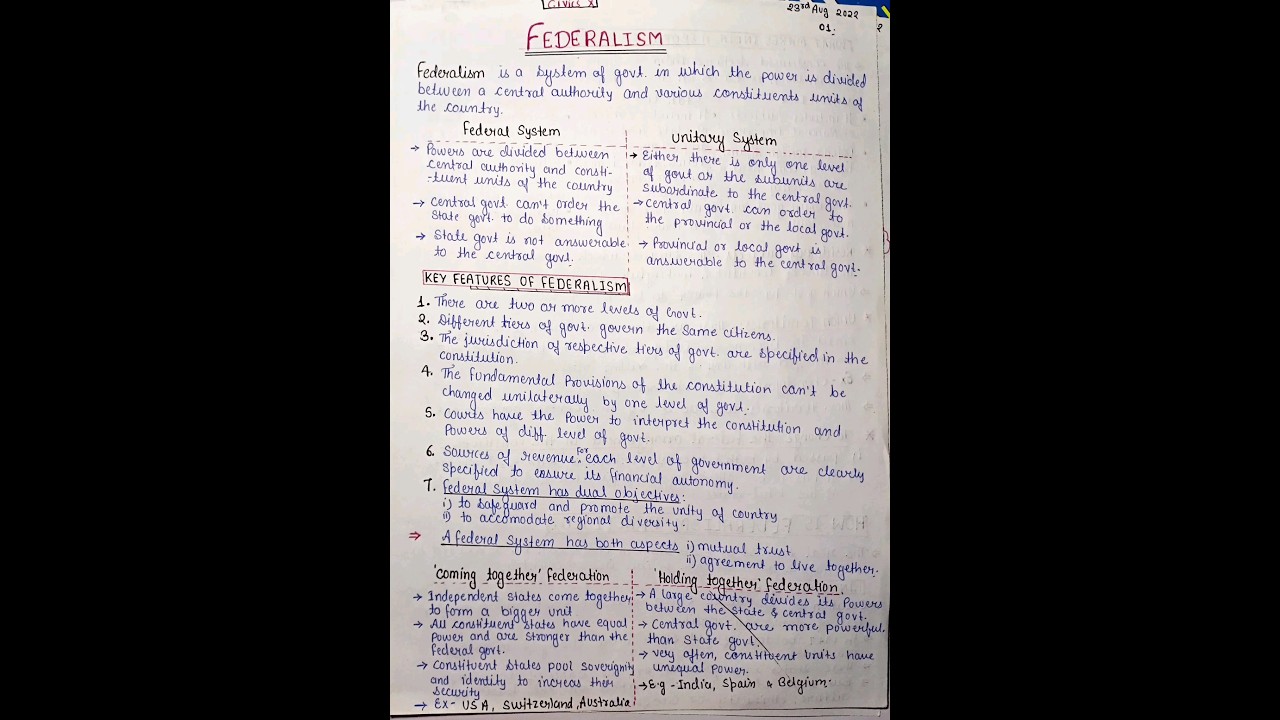 Civics X
23rd Aug 2022
01.
FEDERALISM
Federalism is a system of govt. in which the power is divided
between a central authority and various constituents units of
the country.
Federal System
→ Powers are divided between
central authority and consti-
-tuent units of the country
→ Central govt. can't order the
State govt. to do something
→ State govt is not answerable
to the central govt.
Unitary System
→ Either there is only one level
of govt or the subunits are
subordinate to the central govt.
→ Central govt can order to
the provincial or the local govt.
→ Provincial or local govt is
answerable to the central govt.
KEY FEATURES OF FEDERALISM
1. There are two or more levels of Govt.
2. Different tiers of govt. govern the same citizens.
3. The jurisdiction of respective tiers of govt. are specified in the
constitution.
4. The fundamental Provisions of the constitution can't be
changed unilaterally by one level of govt.
5. Courts have the Power to interpret the constitution and
Powers of diff. level of govt.
6. Sources of revenue for each level of government are clearly
specified to ensure its financial autonomy.
7. Federal System has dual objectives:
i) to safeguard and promote the unity of country
ii) to accomodate regional diversity.
⇒ A federal System has both aspects i) mutual trust
ii) agreement to live together.
'Coming together' federation
→ Independent states come together
to form a bigger unit
→ All constituent states have equal
Power and are stronger than the
federal govt.
→ Constituent States pool soverignity
and identity to increas their
security
→ Ex- USA, Switzerland, Australia
'Holding together' federation
→ A large country devides its Powers
between the State & central govt.
→ Central govt. are more powerful.
than State govt.
→ very often, constituent units have
unequal power.
→ E.g - India, Spain & Belgium.